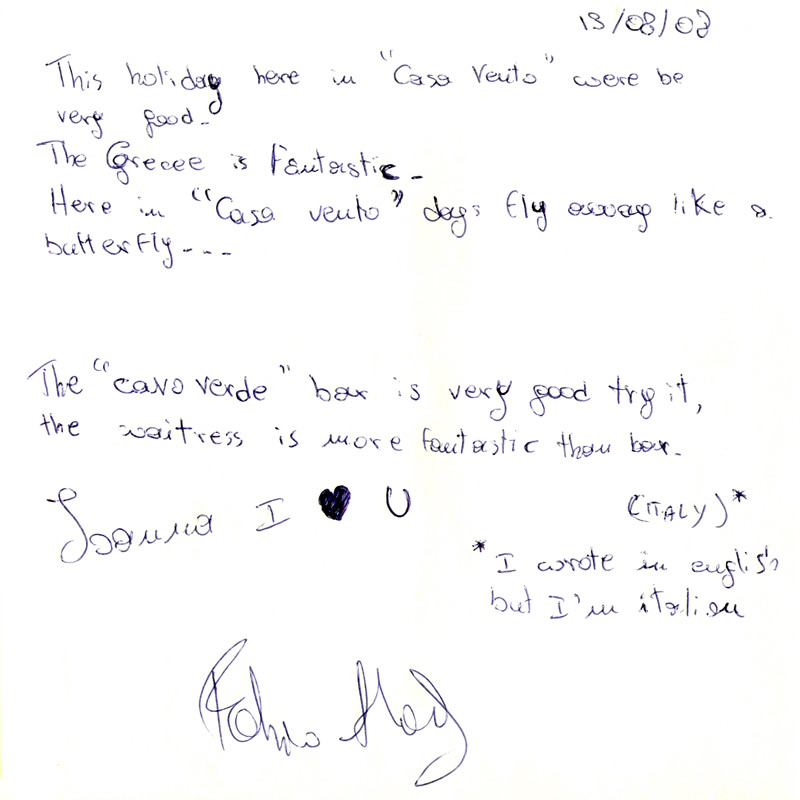 19/08/08
This holiday here in "Casa Vento" were be
very good.
The Greece is Fantastic.
Here in "Casa vento" days fly away like a
butterfly...
The "cavo verde" bar is very good try it,
the waitress is more fantastic than bar.
Ioanna I ♥ U
(ITALY)*
* I wrote in english
but I'm italian
Fabio